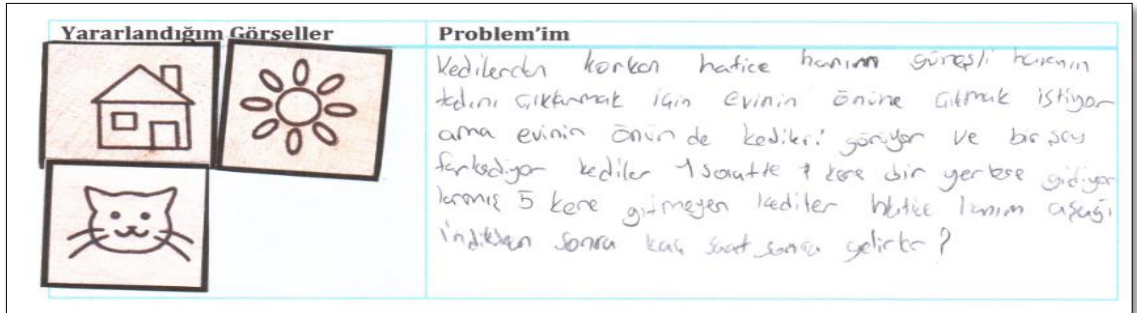 Yararlandığım Görseller
Problem'im
Kedilerden korkan hatice hanım güneşli havanın
tadını çıkarmak için evinin önüne çıkmak istiyor
ama evinin önün de kedileri görüyor ve bir şey
farkediyor kediler 1 saatte 1 kere bir yerlere gidiyor
larmış 5 kere gitmeyen kediler hatice hanım aşağı
indikten sonra kaç saat sonra gelirler?